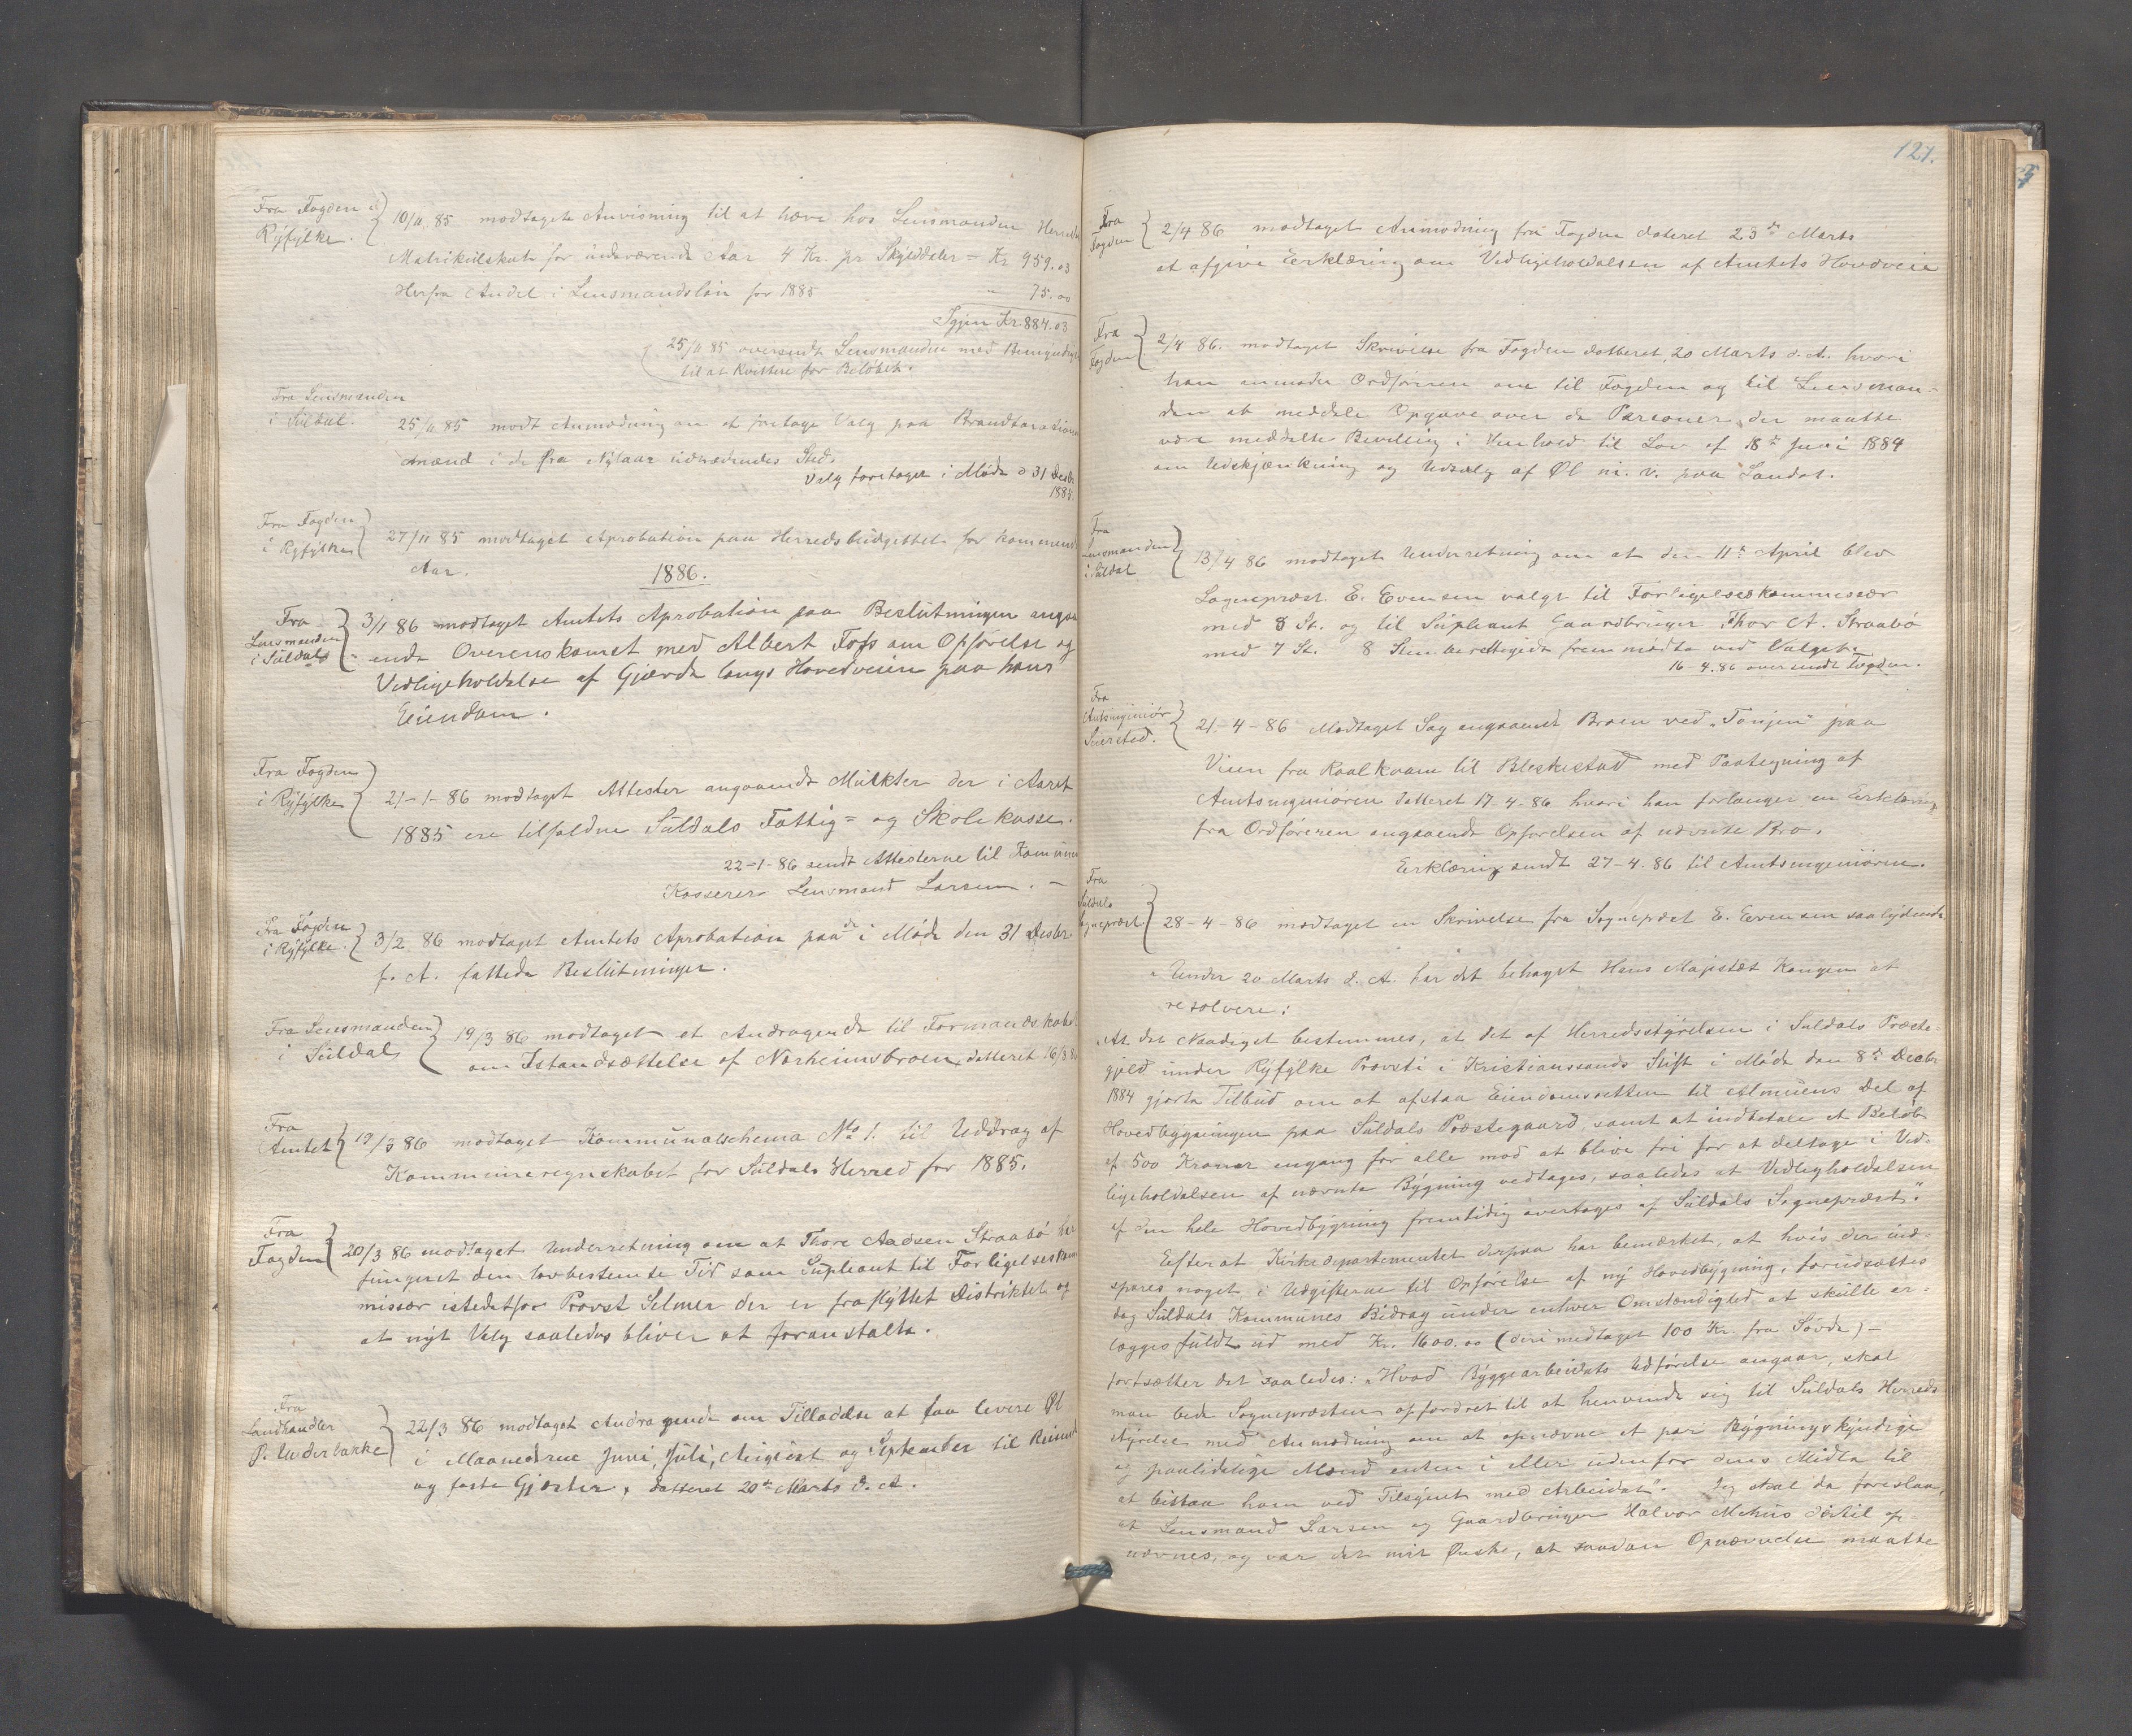 Fra Fogden i
Ryfylke.
10/11 85 modtaget Anvisning til at hæve hos Lensmanden Herreds
Matrikulskat for indeværende Aar 4 Kr. pr Skylddaler = Kr 959.03
Herfra Andel i Lensmandsløn for 1885 " 75.00
Igjen Kr. 884.03
25/11 85 oversendt Lensmanden med Bemyndig
til at kvittere for Beløbet.
Fra Lensmanden
i Suldal.
25/11 85 modt Anmodning om at foretage Valg paa Brandtaxations
mænd i de fra Nytaar udtrædendes Sted.
Valg foretaget i Møde d 31 Decbr
1885.
Fra Fogden
i Ryfylke
27/11 85 modtaget Aprobation paa Herredsbudgettet for kommend
Aar.
1886.
Fra
Lensmanden
i Suldal
3/1 86 modtaget Amtets Aprobation paa Beslutningen angaa
ende Overenskomst med Albert Foss om Opførelse og
Vedligeholdelse af Gjærde langs Hovedveien paa hans
Eiendom.
Fra Fogden
i Ryfylke
21-1-86 modtaget Attester angaaende Mulkter der i Aaret
1885 ere tilfaldne Suldals Fattig= og Skolekasse.
22-1-86 sendt Attesterne til Kommune
Kasserer Lensmand Larsen. —
Fra Fogden
i Ryfylke.
3/2 86 modtaget Amtets Aprobation paa de i Møde den 31 Decbr
f. A. fattede Beslutninger.
Fra Lensmanden
i Suldal
19/3 86 modtaget et Andragende til Formandskabet
om Istandsættelse af Norheimsbroen, datteret 16/3 86
Fra
Amtet
19/3 86 modtaget Kommunalschema No 1. til Uddrag af
Kommuneregnskabet for Suldals Herred for 1885.
Fra
Fogden
20/3 86 modtaget Underretning om at Thore Aadsen Straabø har
fungeret den lovbestemte Tid som Supleant til Forligelseskom
missær istedetfor Provst Selmer der er fraflyttet Distriktet og
at nyt Valg saaledes bliver at foranstalte.
Fra
Landhandler
P. Underbakke
22/3 86 modtaget Andragende om Tilladelse at faa levere Øl
i Maanederne Juni, Juli, August og September til Reisende
og faste Gjæster, datteret 20de Marts d. A.
121.
Fra
Fogden
2/4 86 modtaget Anmodning fra Fogden dateret 23de Marts
at afgive Eerklæring om Vedligeholdelsen af Amtets Hovedveie
Fra
Fogden
2/4 86. modtaget Skrivelse fra Fogden datteret 20 Marts d. A. hvori
han anmoder Ordføreren om til Fogden og til Lensman-
den at meddele Opgave over de Personer der maatte
være meddelte Bevilling i Henhold til Lov af 18de Juni 1884
om Udskjænkning og Udsalg af Øl m. v. paa Landet.
Fra
Lensmanden
i Suldal
13/4 86 modtaget Underretning om at den 11te April blev
Sogneprest E. Evensen valgt til Forligelseskommissær
med 8 St. og til Supleant Gaardbruger Thor A. Straabø
med 7 St. 8 Stemberettigede fremmødte ved Valget.
16-4.86 oversendt Fogden.
Fra
Amtsingeniør
Seiersted.
21-4-86 Modtaget Sag angaaende Broen ved "Tonjen" paa
Veien fra Roalkvam til Bleskestad med Paategning af
Amtsingeniøren datteret 17-4-86 hvori han forlanger en Erklæring
fra Ordføreren angaaende Opførelsen af nævnte Bro.
Erklæring sendt 27-4-86 til Amtsingeniøren.
Fra
Suldals
Sogneprest
28-4-86 modtaget en Skrivelse fra Sogneprest E. Evensen saalydende
"Under 20 Marts d. A. har det behaget Hans Majestæt Kongen at
resolvere:
"At det Naadigst bestemmes, at det af Herredsstyrelsen i Suldals Præste-
gjeld under Ryfylke Provsti i Kristianssands Stift i Møde den 8de Decbr
1884 gjorte Tilbud om at afstaa Eiendomsretten til Almuens Del af
Hovedbygningen paa Suldals Præstegaard, samt at indbetale et Beløb
af 500 Kroner engang for alle mod at blive fri for at deltage i Ved-
ligeholdelsen af nævnte Bygning vedtages, saaledes at Vedligeholdelsen
af den hele Hovedbygning fremtidig overtages af Suldals Sogneprest."
Efterat Kirkedepartementet derpaa har bemærket, at hvis der ind-
spares noget i Udgifterne til Opførelse af ny Hovedbygning, forudsættes
dog Suldals Kommunes Bidrag under enhver Omstændighed at skulle er-
lægges fuldt ud med Kr. 1600.00 (deri medtaget 100 Kr. fra Søvde) —
fortsætter det saaledes: "Hvad Byggearbeidets Udførelse angaar, skal
man bede Sognepresten opfordret til at henvende sig til Suldals Herreds
styrelse med Anmodning om at opnævne et par Bygningskyndige
og paalidelige Mænd enten i eller udenfor dens Midte til
at bistaa ham ved Tilsynet med Arbeidet". Jeg skal da foreslaa,
at Lensmand Larsen og Gaardbruger Halvor Mehus dertil op-
nævnes, og var det mit Ønske, at saadan Opnævnelse maatte